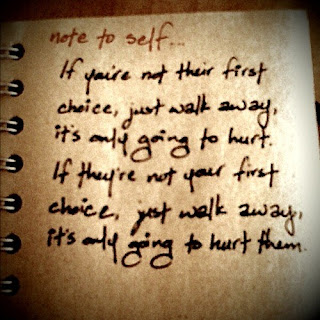 note to self...
If you're not their first
choice, just walk away,
it's only going to hurt.
If they're not your first
choice, just walk away,
it's only going to hurt them.